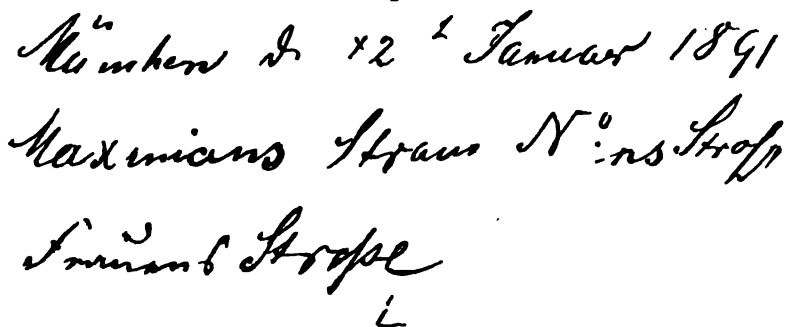 München d. 2 Januar 1891
Maximians Straus No ns Straße
Frauens Straße